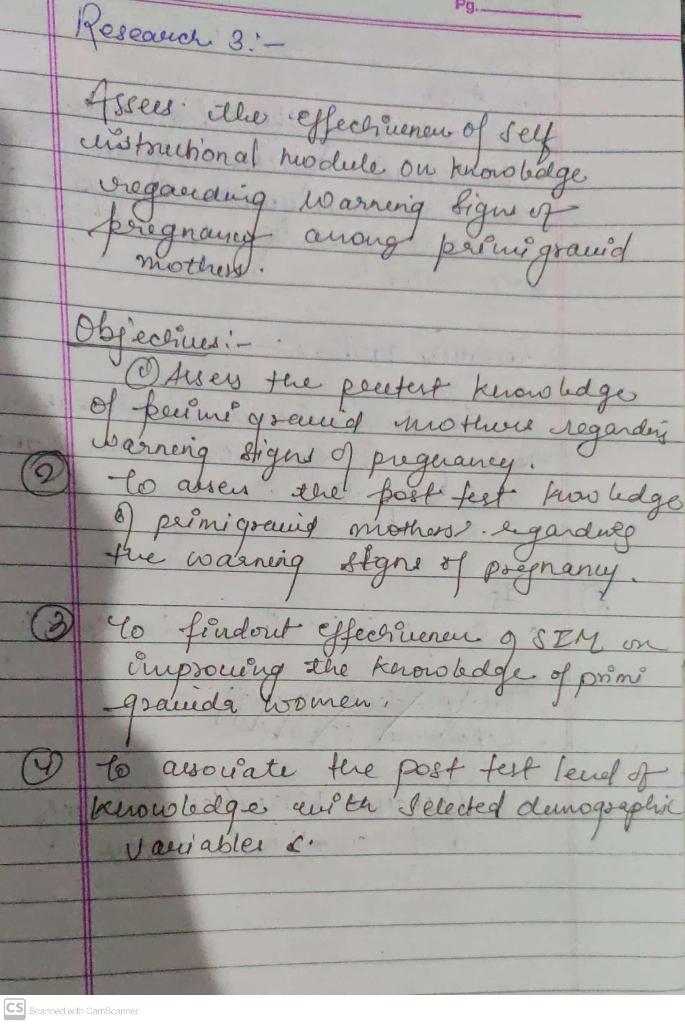 Pg.
Research 3:-
Assess the effectiveness of self
instructional module on knowledge
regarding warning signs of
pregnancy among primigravid
mothers.
Objectives:-
① Assess the pretest knowledge
of primi gravid mothers regarding
warning signs of pregnancy.
② to assess the post test knowledge
of primigravid mothers regarding
the warning signs of pregnancy.
③ To findout effectiveness of SIM on
improving the knowledge of primi
gravida women.
④ to associate the post test level of
knowledge with selected demographic
variables
CS Scanned with CamScanner